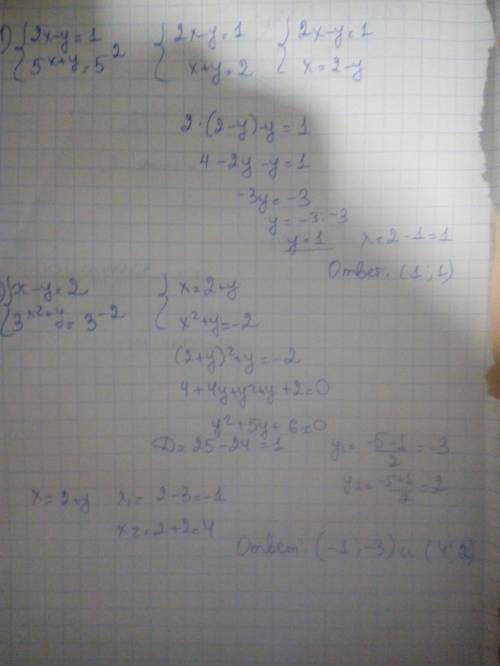 1) {2x-y=1 {2x-y=1 {2x-y=1
5^(x+y)=5^2 x+y=2 x=2-y
2·(2-y)-y=1
4-2y-y=1
-3y=-3
y=-3:-3
y=1 x=2-1=1
Ответ: (1;1)
) {x-y=2 {x=2+y
3^(x²+y)=3^(-2) x²+y=-2
(2+y)²+y=-2
4+4y+y²+y+2=0
y²+5y+6=0
D=25-24=1 y₁=(-5-1)/2=-3
y₂=(-5+1)/2=2
x=2+y x₁=2-3=-1
x₂=2+2=4
Ответ: (-1;-3) и (4;2)